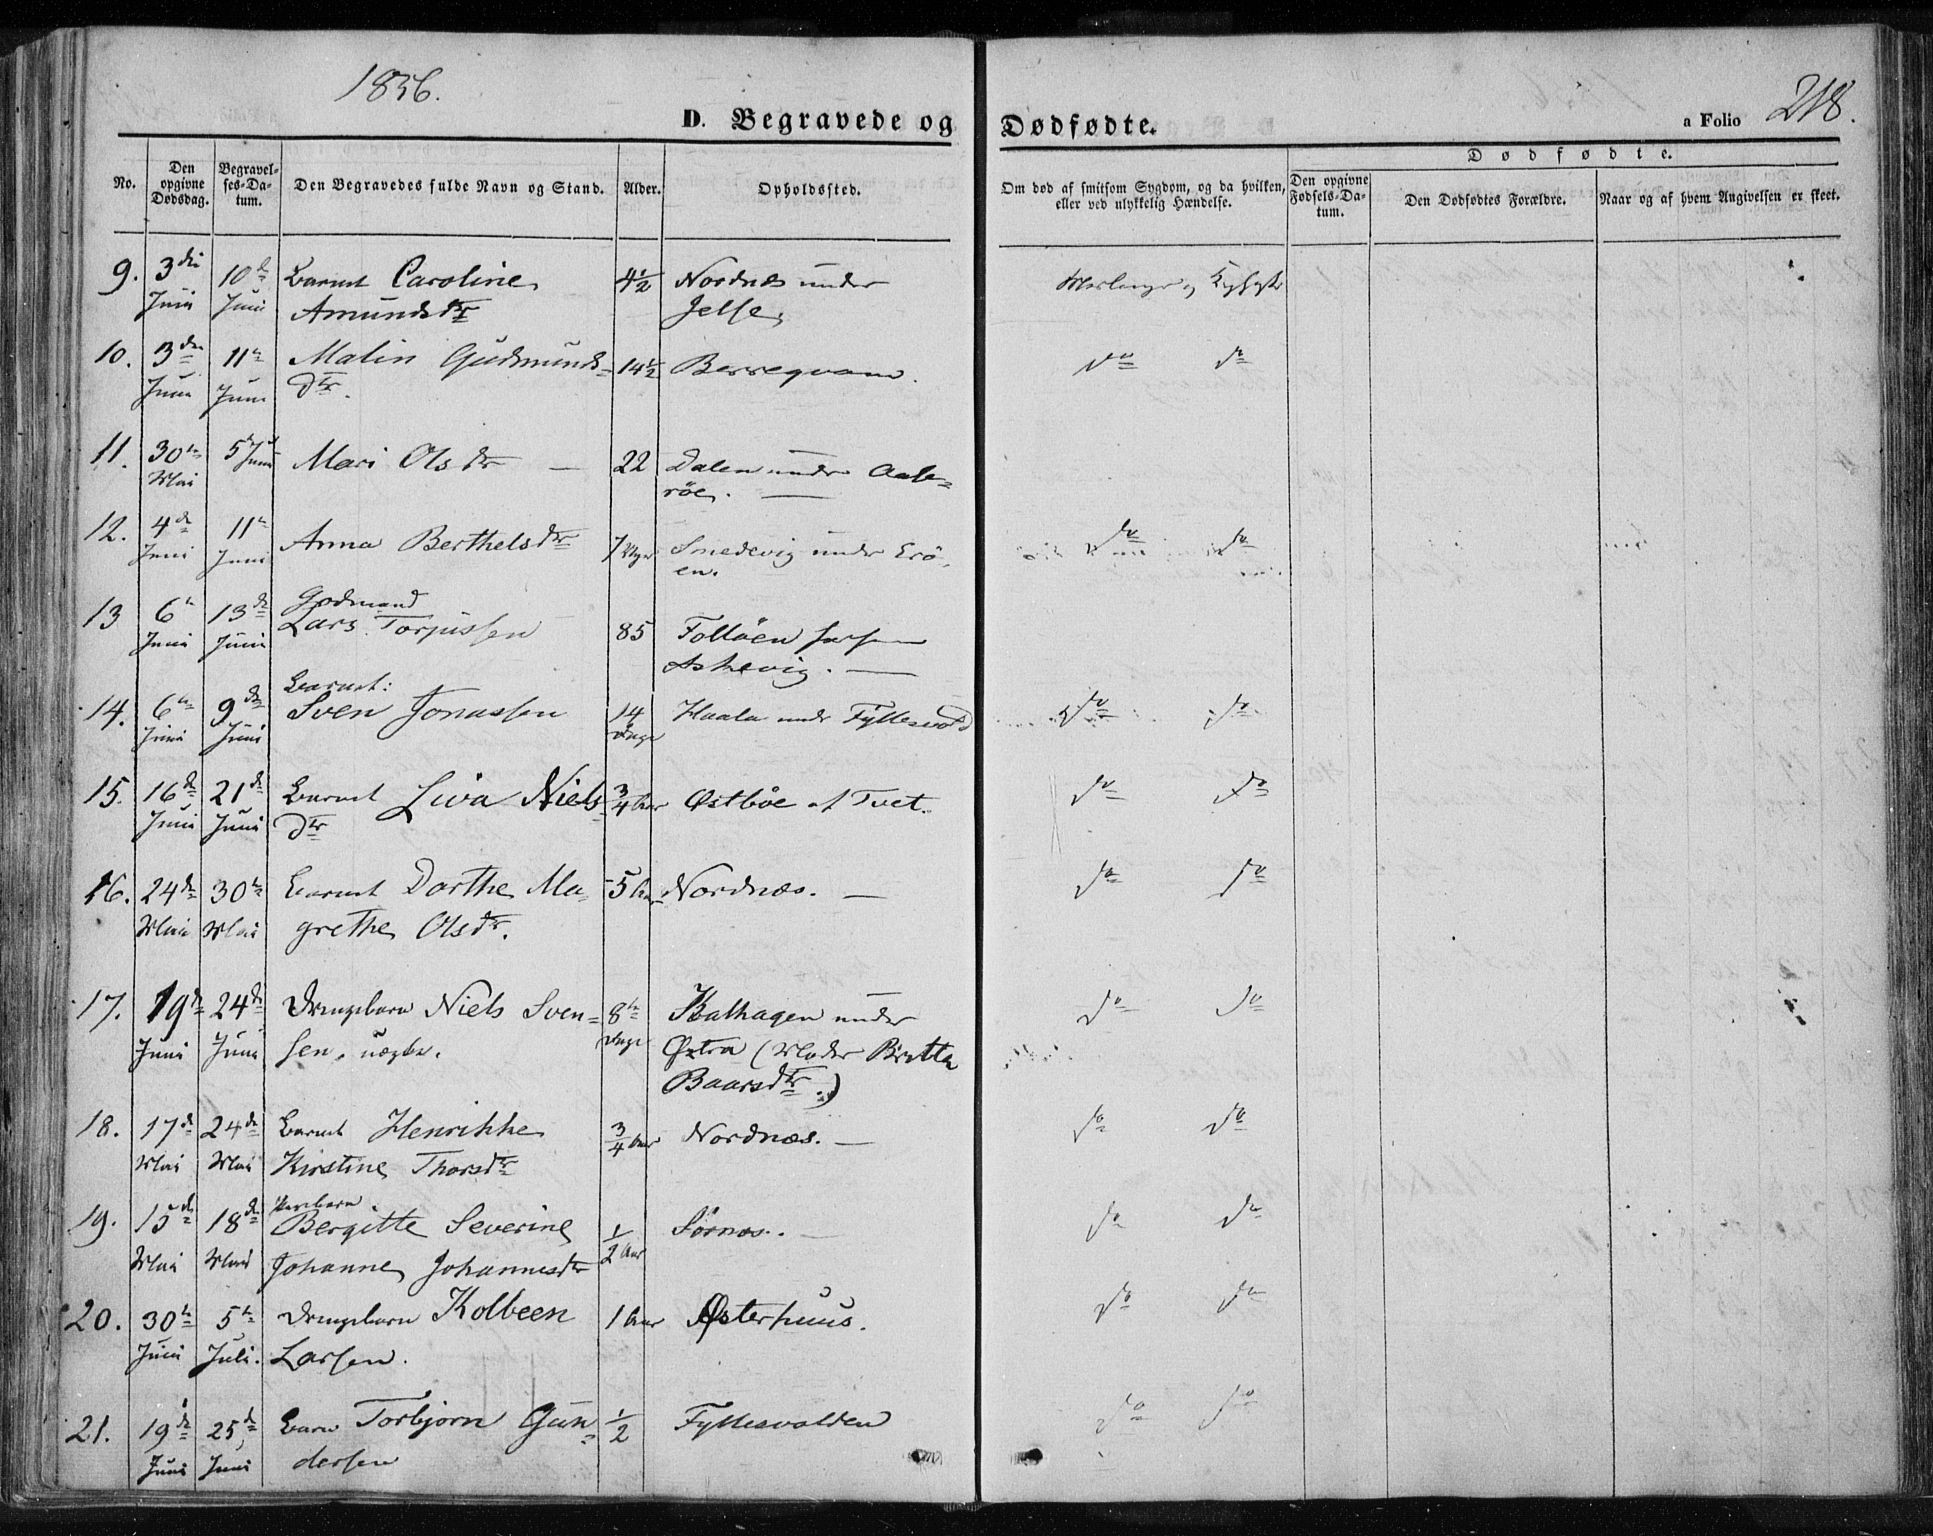 1856.
218.
D. Begravede og Dødfødte.
a Folio
No.
Den opgivne Dødsdag.
Begravelses-Datum.
Den Begravedes fulde Navn og Stand.
Alder.
Opholdssted.
Om død af smitsom Sygdom, og da hvilken, eller ved ulykkelig Hændelse.
Dødfødte.
Den opgivne Fødsels-Datum.
Den Dødfødtes Forældre.
Naar og af hvem Angivelsen er skeet.
9. 3die 10de Barnet Caroline 4½ Nordnæs under
Juni Juni Amundsdtr Jelse.
10. 3die 11te Malin Gudmunds- 14½ Berrequam. do do
Juni Juni dtr.
11. 30te 5 Juni Mari Olsdtr — 22 Dalen under
Mai röe. —
12. 4de 11te Anna Berthelsdtr 7 Smedevig under Erö- do do
Juni Juni en.
13 6te 13de Godmand
Juni Juni Lars Torjussen 85 Foldöen
Askevig. —
14. 6te 9de Barnet: do do
Juni Juni Sven Jonassen 14 Dage Haala under
15. 16de 21de Barnet Liva Niels- ¾ Aar Østböe af Tvet. do do
Juni Juni dtr
16. 24de 30te Barnet Dorthe Ma- 5 Aar Nordnæs. — do do
Mai Mai grethe Olsdtr.
17. 19de 24de Drengebarn Niels Sven- 8te Dage Kalhagen under do do
Juni Juni sen, uægte. Østra (Moder Britta
Baarsdtr.)
18. 17de 24de Barnet Henrikke ¾ Aar Nordnæs. — do do
Mai Mai Kirstine Thorsdtr
19. 15de 18de Pigebarn
Mai Mai Bergitte Severine ½ Aar Sörnæs. — do do
Johanne Johannesdtr
20. 30te 5te Drengebarn Kolbeen 1 Aar Østerhuus. do do
Juni Juli. Larsen.
21. 19de 25de Barn Torbjörn Gun- ½ Fyllesvolden do do
Juni Juni dersen